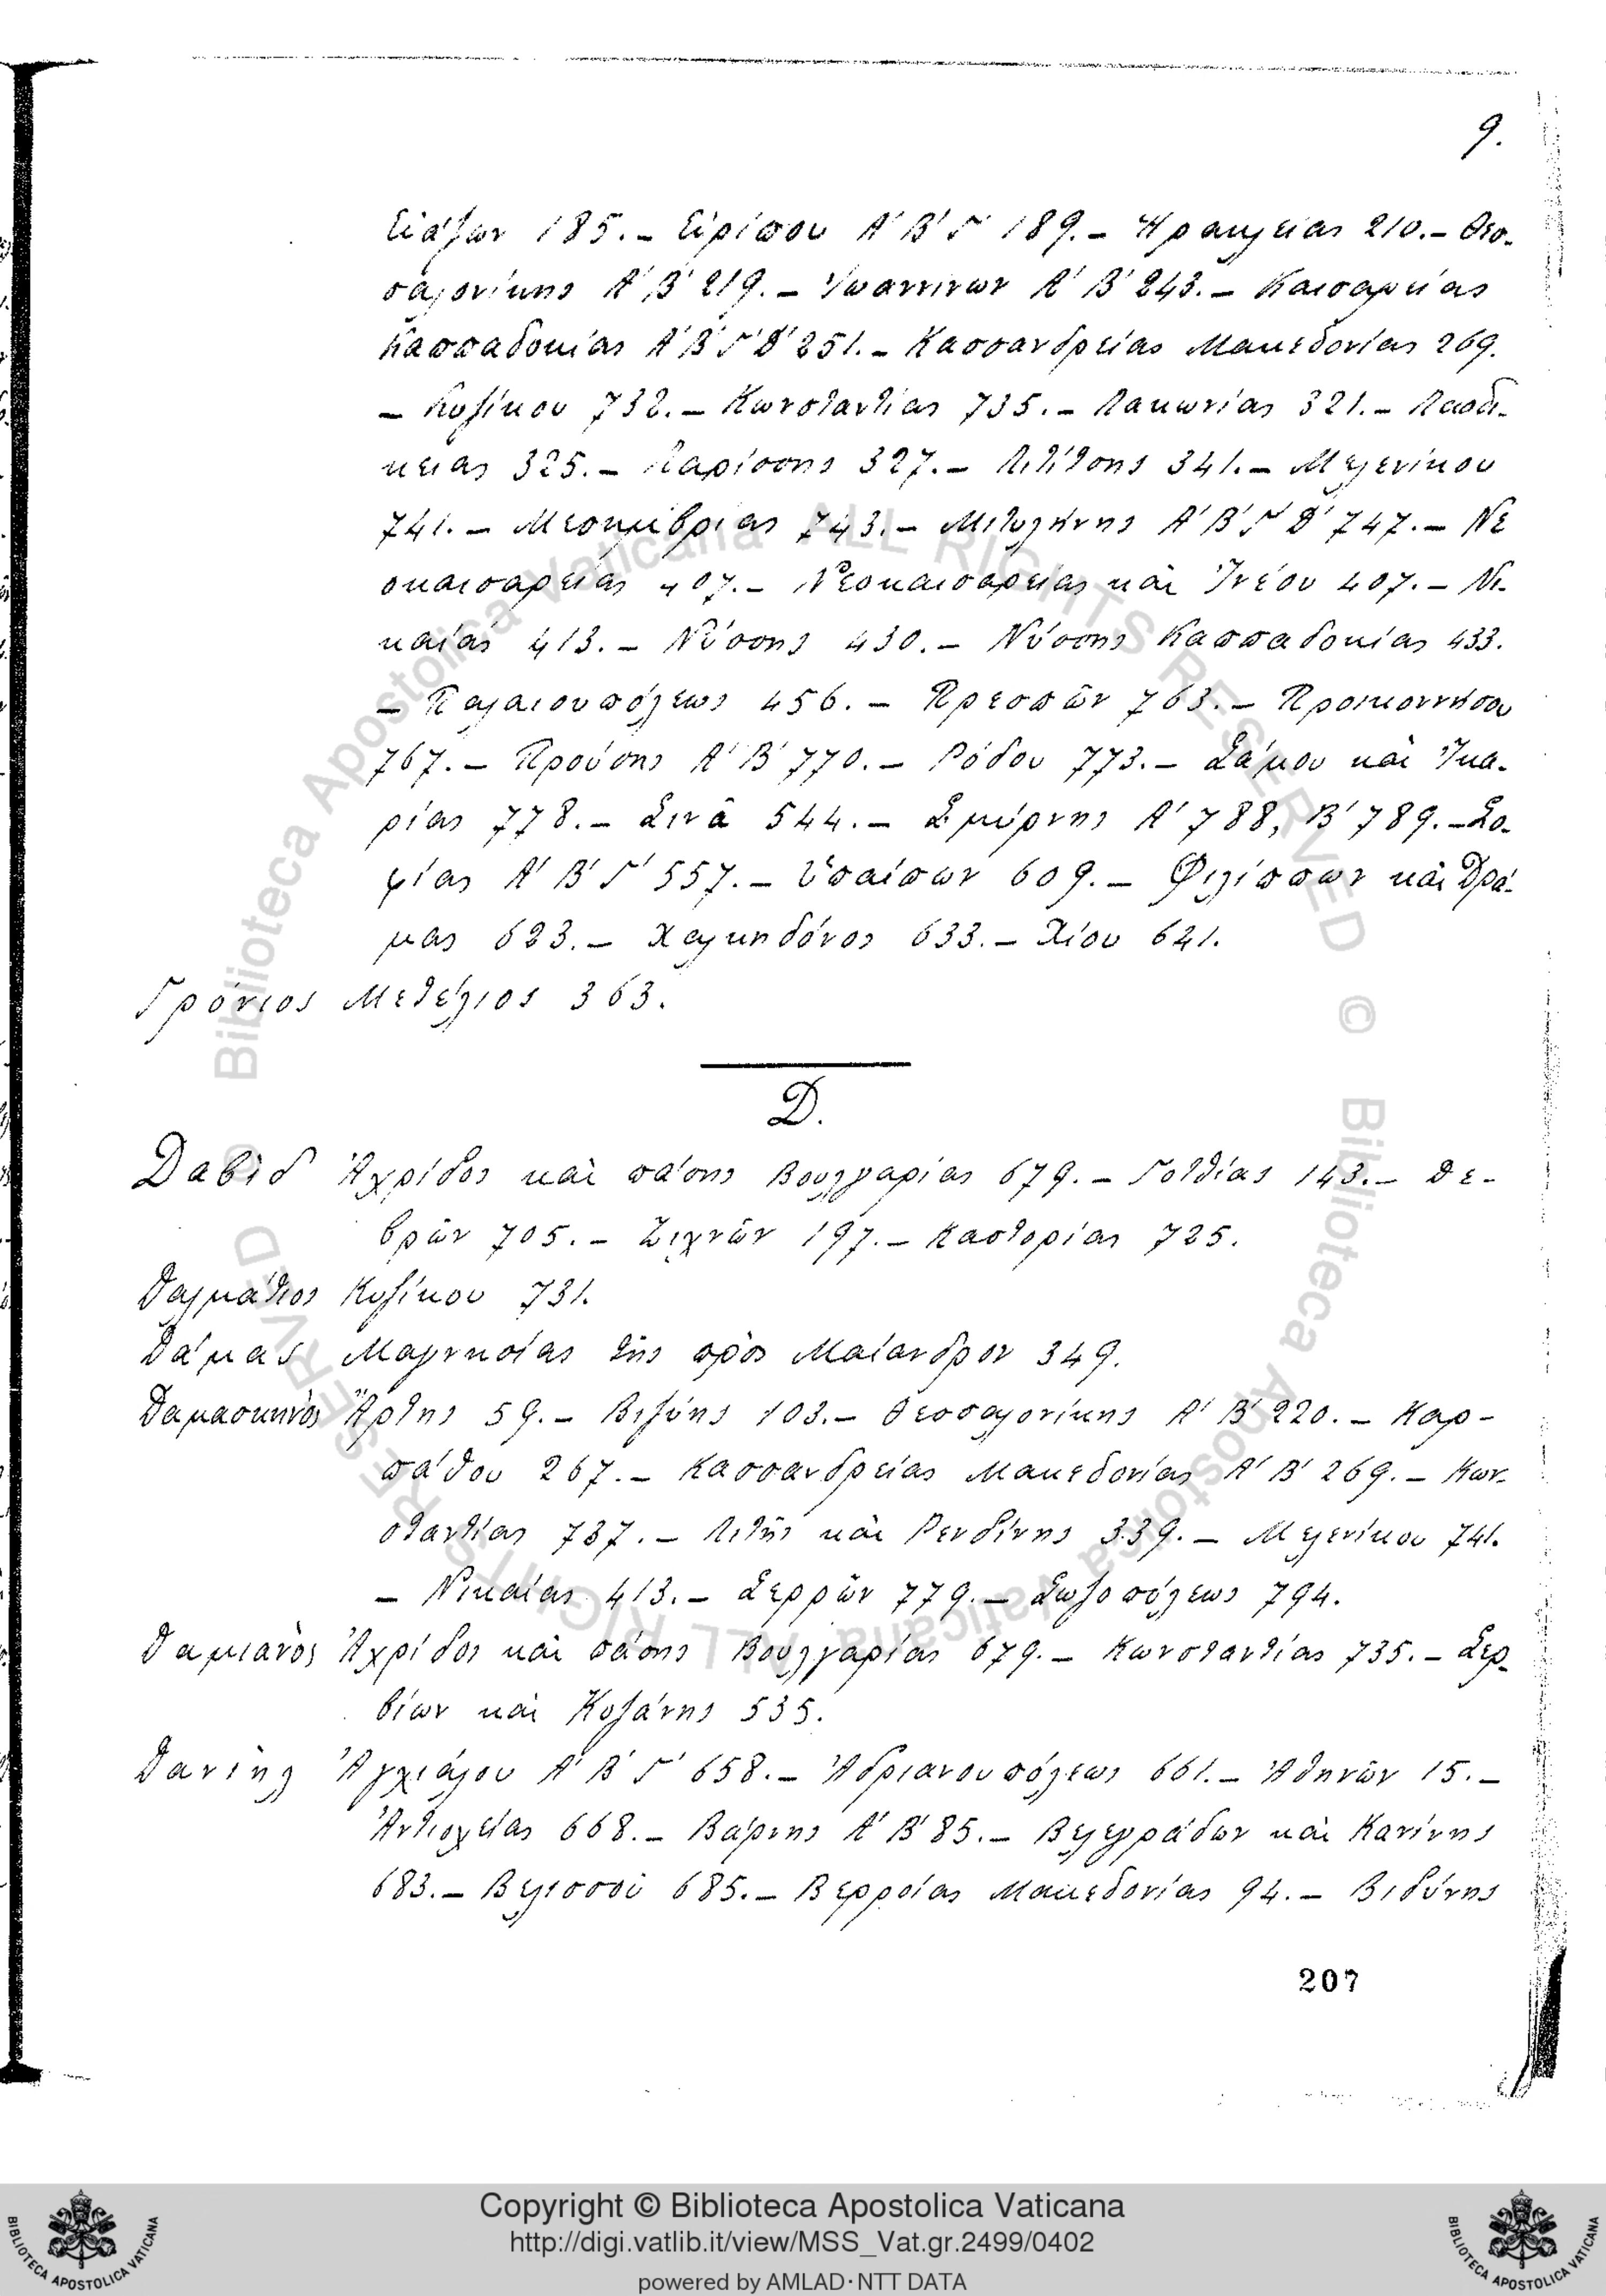 9.
Εὐάζων 185.– Εὐρίπου Α΄ Β΄ Γ΄ 189.– Ἡρακλείας 210.– Θεσ-
σαλονίκης Α΄ Β΄ 219.– Ἰωαννίνων Α΄ Β΄ 243.– Καισαρείας
Καππαδοκίας Α΄ Β΄ Γ΄ Δ΄ 251.– Κασσανδρείας Μακεδονίας 269.
– Κυζίκου 732.– Κωνσταντίας 735.– Λακωνίας 321.– Λαοδι-
κείας 325.– Λαρίσσης 327.– Λιτίτσης 341.– Μελενίκου
741.– Μεσημβρίας 743.– Μιτυλήνης Α΄ Β΄ Γ΄ Δ΄ 747.– Νε
οκαισαρείας 407.– Νεοκαισαρείας καὶ Ἰνέου 407.– Νι-
καίας 413.– Νύσσης 430.– Νύσσης Καππαδοκίας 433.
– Παλαιουπόλεως 456.– Πρεσπῶν 763.– Προικοννήσου
767.– Προύσης Α΄ Β΄ 770.– Ρόδου 773.– Σάμου καὶ Ἰκα-
ρίας 778.– Σινᾶ 544.– Σμύρνης Α΄ 788, Β΄ 789.– Σο-
φίας Α΄ Β΄ Γ΄ 557.– Ὑπαίπων 609.– Φιλίππων καὶ Δρά-
μας 623.– Χαλκηδόνος 633.– Χίου 641.
Γρόνιος Μετέλιος 363.
Δ.
Δαβὶδ Ἀχρίδος καὶ πάσης Βουλγαρίας 679.– Γοτθίας 143.– Δε-
βρῶν 705.– Ζιχνῶν 197.– Καστορίας 725.
Δαλμάτιος Κυζίκου 731.
Δάμας Μαγνησίας τῆς πρὸς Μαίανδρον 349.
Δαμασκηνὸς Ἄρτης 59.– Βιζύης 103.– Θεσσαλονίκης Α΄ Β΄ 220.– Καρ-
πάθου 267.– Κασσανδρείας Μακεδονίας Α΄ Β΄ 269.– Κων-
σταντίας 737.– Λιτῆς καὶ Ρενδίνης 339.– Μελενίκου 741.
– Νικαίας 413.– Σερρῶν 779.– Σωζοπόλεως 794.
Δαμιανὸς Ἀχρίδος καὶ πάσης Βουλγαρίας 679.– Κωνσταντίας 735.– Σερ-
βίων καὶ Κοζάνης 535.
Δανιὴλ Ἀγχιάλου Α΄ Β΄ Γ΄ 658.– Ἀδριανουπόλεως 661.– Ἀθηνῶν 15.–
Ἀντιοχείας 668.– Βάρνης Α΄ Β΄ 85.– Βελεγράδων καὶ Κανίνης
683.– Βελισσοῦ 685.– Βερροίας Μακεδονίας 94.– Βιδύνης
207
Copyright © Biblioteca Apostolica Vaticana
http://digi.vatlib.it/view/MSS_Vat.gr.2499/0402
powered by AMLAD·NTT DATA
BIBLIOTECA APOSTOLICA VATICANA
BIBLIOTECA APOSTOLICA VATICANA
Biblioteca Apostolica Vaticana ALL RIGHTS RESERVED ©
Biblioteca Apostolica Vaticana ALL RIGHTS RESERVED ©